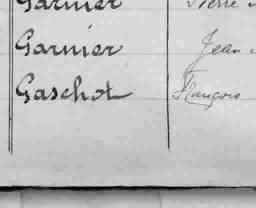 Garnier Pierre
Garnier Jean
Gaschot François